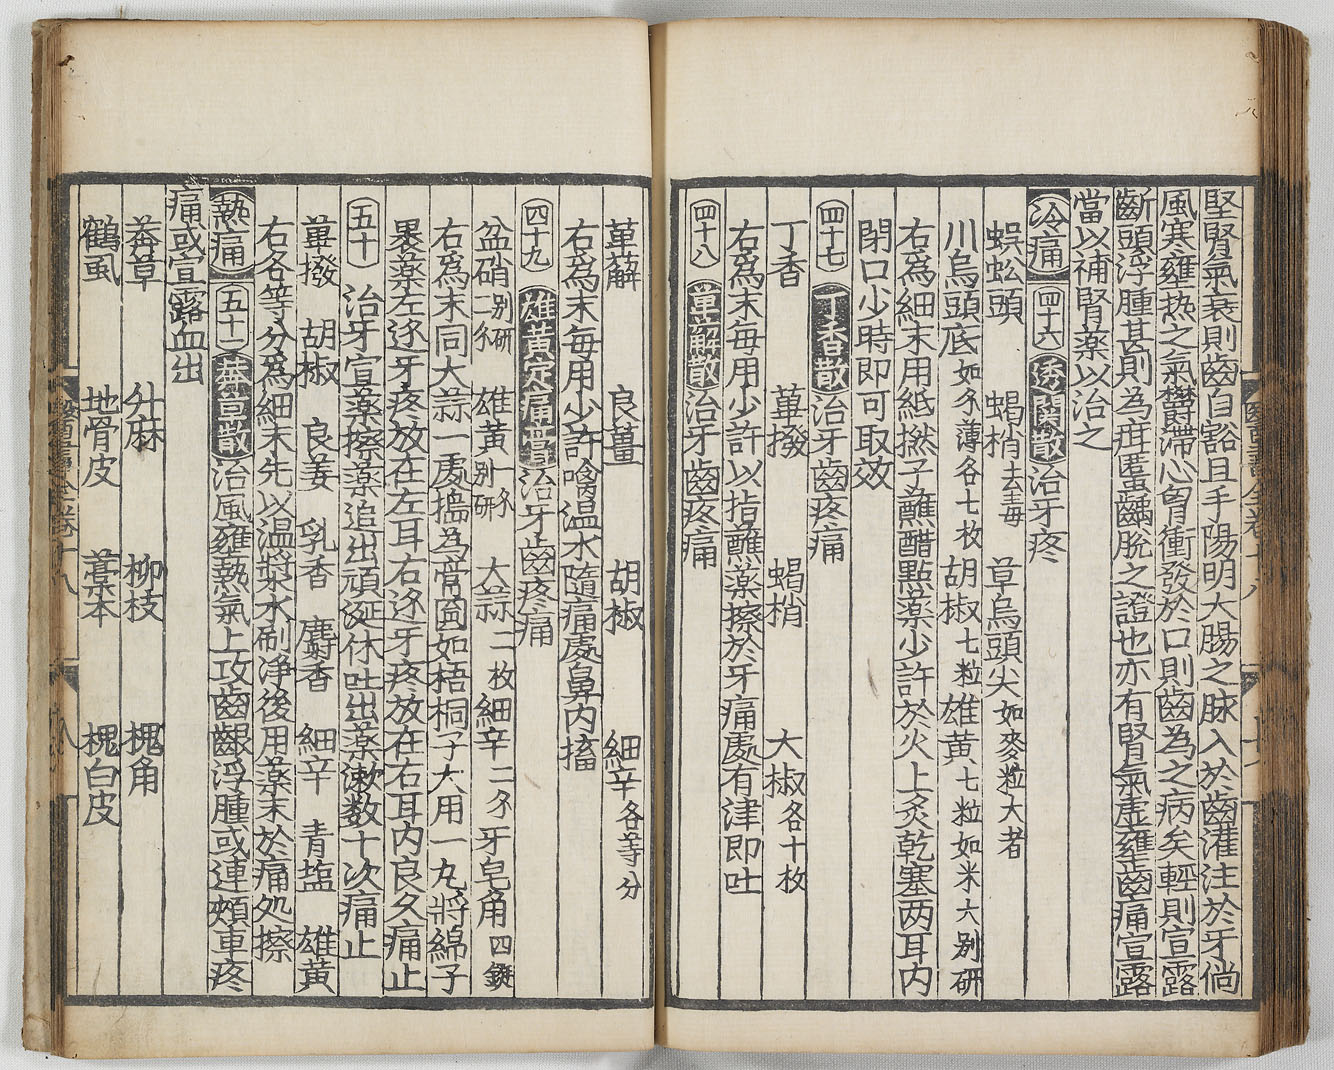 堅腎氣衰則齒自豁且手陽明大腸之脉入於齒灌注於牙倘
風寒壅热之氣欝滯心胷衝發於口則齒為之病矣輕則宣露
齗頭浮腫甚則為疳䘌齲脫之證也亦有腎氣虛壅齒痛宣露
當以補腎藥以治之
冷痛 四十六 透關散 治牙疼
蜈蚣頭 蝎梢去毒 草烏頭尖如麥粒大者
川烏頭底如尒薄各七枚 胡椒七粒 雄黃七粒如米大别研
右爲細末用紙撚子蘸醋點藥少許於火上炙乾塞两耳内
閉口少時即可取效
四十七 丁香散 治牙齒疼痛
丁香 蓽撥 蝎梢 大椒各十枚
右爲末每用少許以指蘸藥擦於牙痛處有津即吐
四十八 蓽薢散 治牙齒疼痛
草薢 良薑 胡椒 細辛各等分
右爲末每用少許噙温水隨痛處鼻内搐
四十九 雄黃定痛膏 治牙齒疼痛
盆硝二尒别研 雄黃一尒别研 大蒜二枚 細辛二尒 牙皂角四錠
右爲末同大蒜一處搗為膏圎如梧桐子大用一丸將綿子
裹藥左边牙疼放在左耳右边牙疼放在右耳内良久痛止
五十 治牙宣藥擦藥追出頑涎休吐出藥漱数十次痛止
蓽撥 胡椒 良姜 乳香 麝香 細辛 青塩 雄黃
右各等分爲細末先以温漿水刷净後用藥末於痛処擦
熱痛 五十一 㳟 散 治風壅熱氣上攻齒齦浮腫或連頰車疼
痛或宣露血出
莽草 升麻 柳枝 槐角
鶴虱 地骨皮 藁本 槐白皮
醫書大全卷十八
八